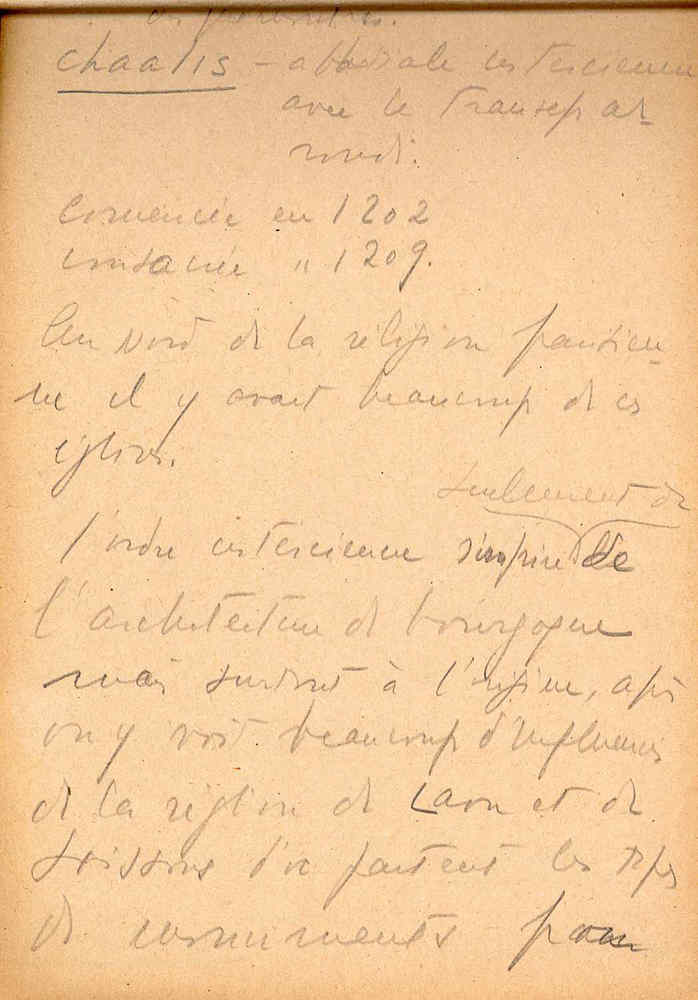 chaalis – abbatiale cistercienne
avec le transept ar-
rondi.
Commencée en 1202
consacrée " 1209.
Au Nord de la région parisien-
ne il y avait beaucoup de ces
églises.
seulement de
l'ordre cistercienne s'inspire de
l'architecture de bourgogne
mais surtout à l'origine, après
on y voit beaucoup d'influences
de la région de Laon et de
Soissons d'où partent les types
de monuments pour